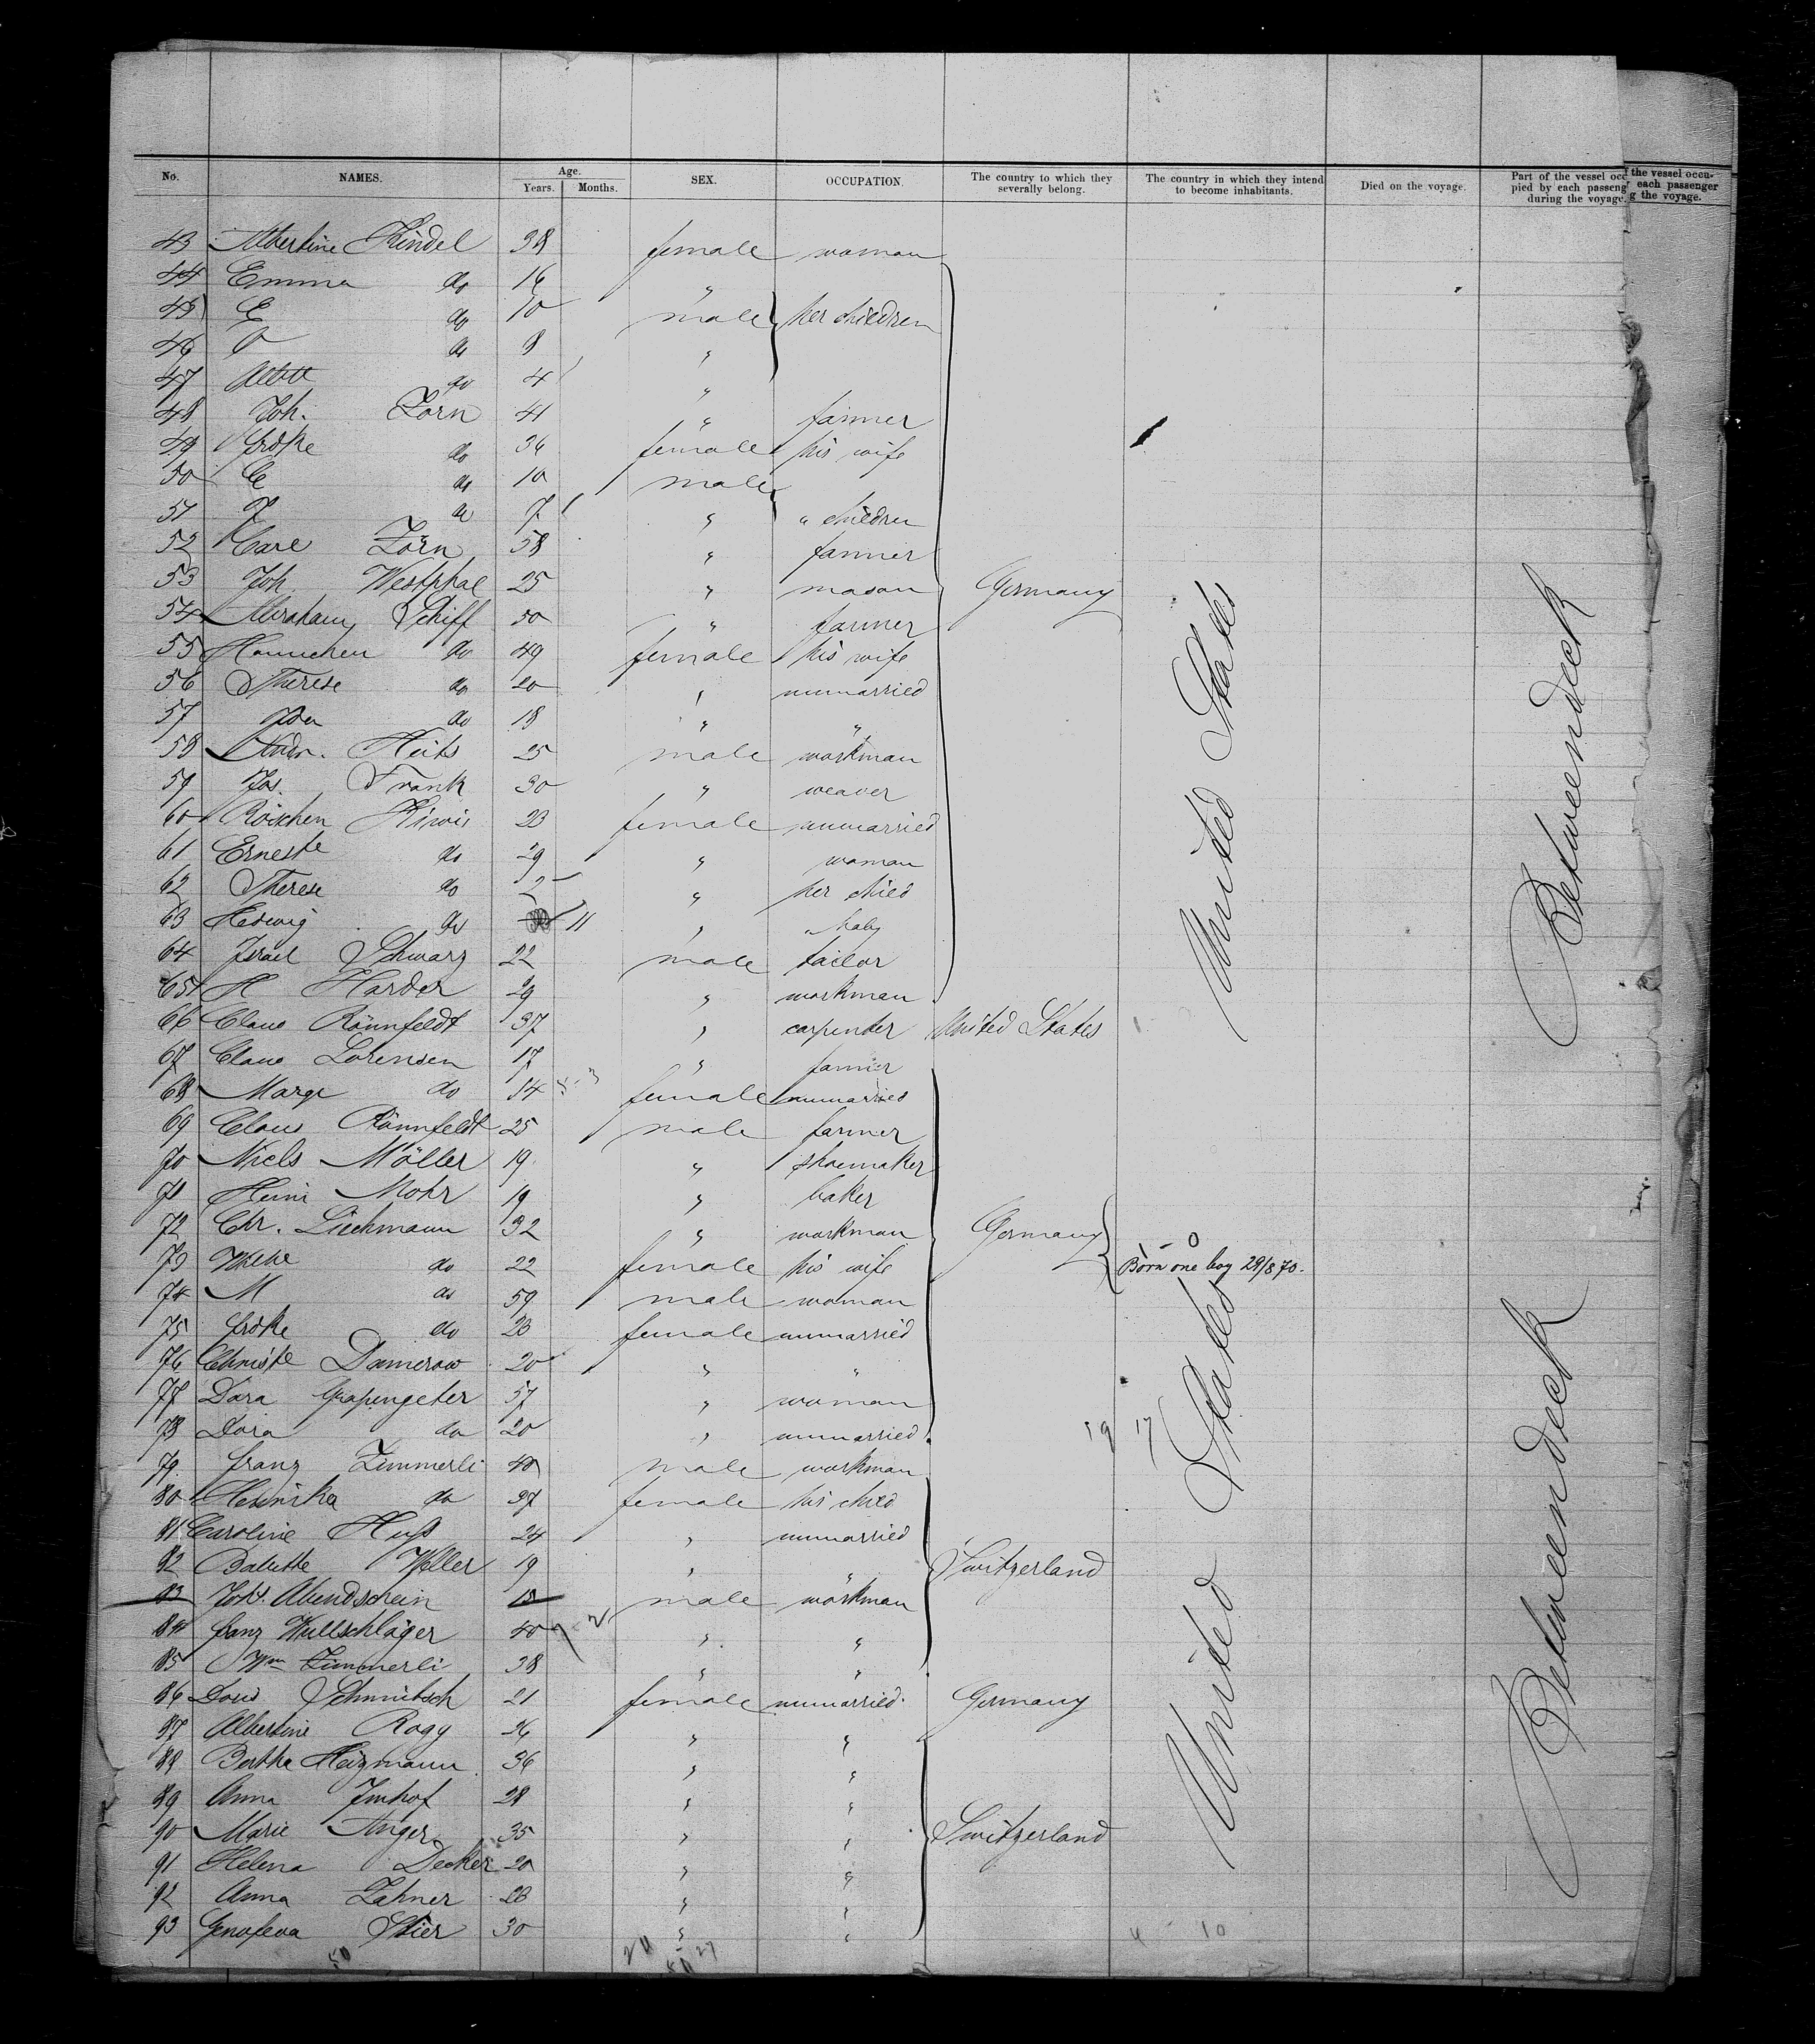 No. NAMES. Age. Years. Months. SEX. OCCUPATION. The country to which they severally belong. The country in which they intend to become inhabitants. Died on the voyage. Part of the vessel occupied by each passenger during the voyage.
f the vessel occu-
each passenger
g the voyage.
43 Albertine Kindel 38 female woman
44 Emma do 16 "
45 E do 10 male her children
46 do 8 "
47 do 4 "
48 Joh. Zorn 41 " farmer
49 do 36 female his wife
50 C do 10 male
51 do 7 " " children
52 Carl Zorn 58 " farmer
53 Joh. Westphal 25 " mason Germany
54 Abraham Schiff 50 " farmer
55 Hannchen do 49 female his wife
56 Therese do 20 " unmarried
57 do 18 " "
58 Andr. 25 male workman
59 Jos. Frank 30 " weaver
60 Röschen 23 female unmarried
61 Ernestte do 29 " woman
62 Therese do 2 " her child
63 Hedwig do 11 " " baby
64 Israel Schwarz 22 male tailor
65 H Harder 29 " workman
66 Claus Rönnfeldt 37 " carpenter United States
67 Claus Lorensen 17 " farmer
68 Marge do 14 female unmarried
69 Claus Rönnfeldt 25 male farmer
70 Niels Möller 19 " shoemaker
71 Heinr Mohr 19 " baker
72 Chr. Liechmann 32 " workman Germany
73 Wiebe do 22 female his wife Born one boy 29/8 70.
74 M do 59 male woman
75 do 23 female unmarried
76 Christe Damerow 20 " "
77 Dora Grapengeter 57 " woman
78 Dora do 20 " unmarried 19 17
79 Franz Zimmerli 40 male workman
80 do 37 female his child
81 Caroline Huß 24 " unmarried
82 Babette Weller 19 " " Switzerland
83 Johs. Abendschein 15 male workman
84 Franz Wullschläger 40 " "
85 Wm Zimmerli 38 " "
86 Doris 21 female unmarried Germany
87 Albertine Rogy 36 " "
88 Bertha Heizmann 36 " "
89 Anna Imhof 28 " "
90 Marie Anger 35 " " Switzerland
91 Helena Decker 20 " "
92 Anna Zahner 23 " "
93 Genofeva Stier 30 " "
United States
United States
Betweendeck
Betweendeck
4 10
50
27